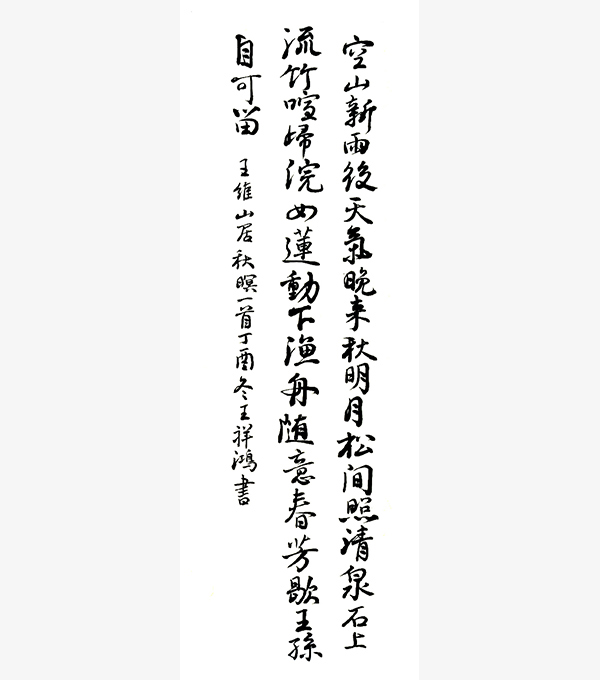 空山新雨後天氣晚来秋明月松间照清泉石上
流竹喧歸浣女蓮動下漁舟随意春芳歇王孫
自可留
王維山居秋暝一首丁酉冬王祥鴻書